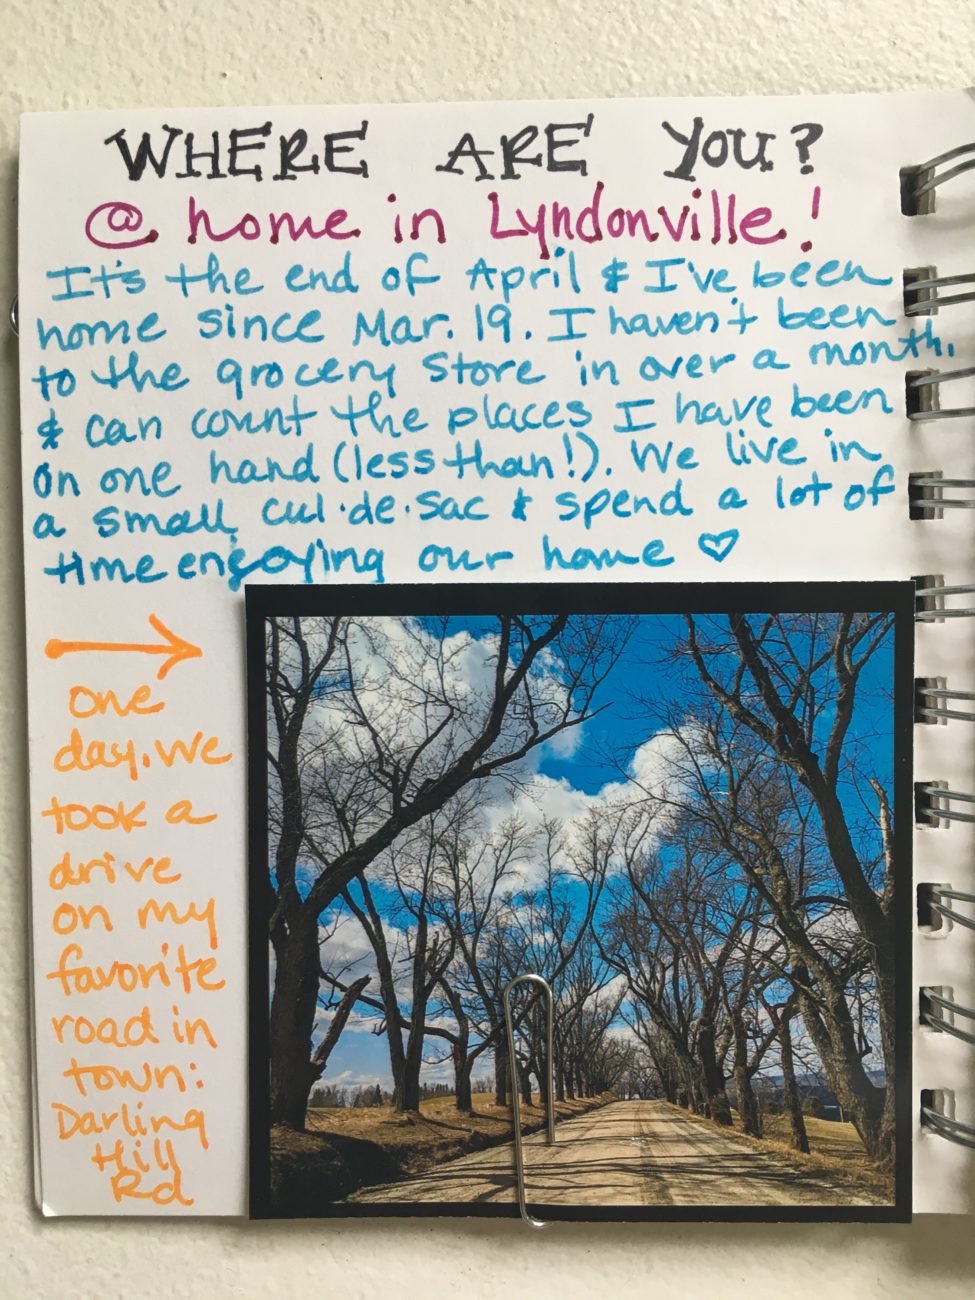 WHERE ARE YOU?
@ home in Lyndonville!
It's the end of April & I've been
home since Mar. 19. I haven't been
to the grocery store in over a month.
& can count the places I have been
on one hand (less than!). We live in
a small cul·de·sac & spend a lot of
time enjoying our home ♡
→
one
day, we
took a
drive
on my
favorite
road in
town:
Darling
Hill
Rd